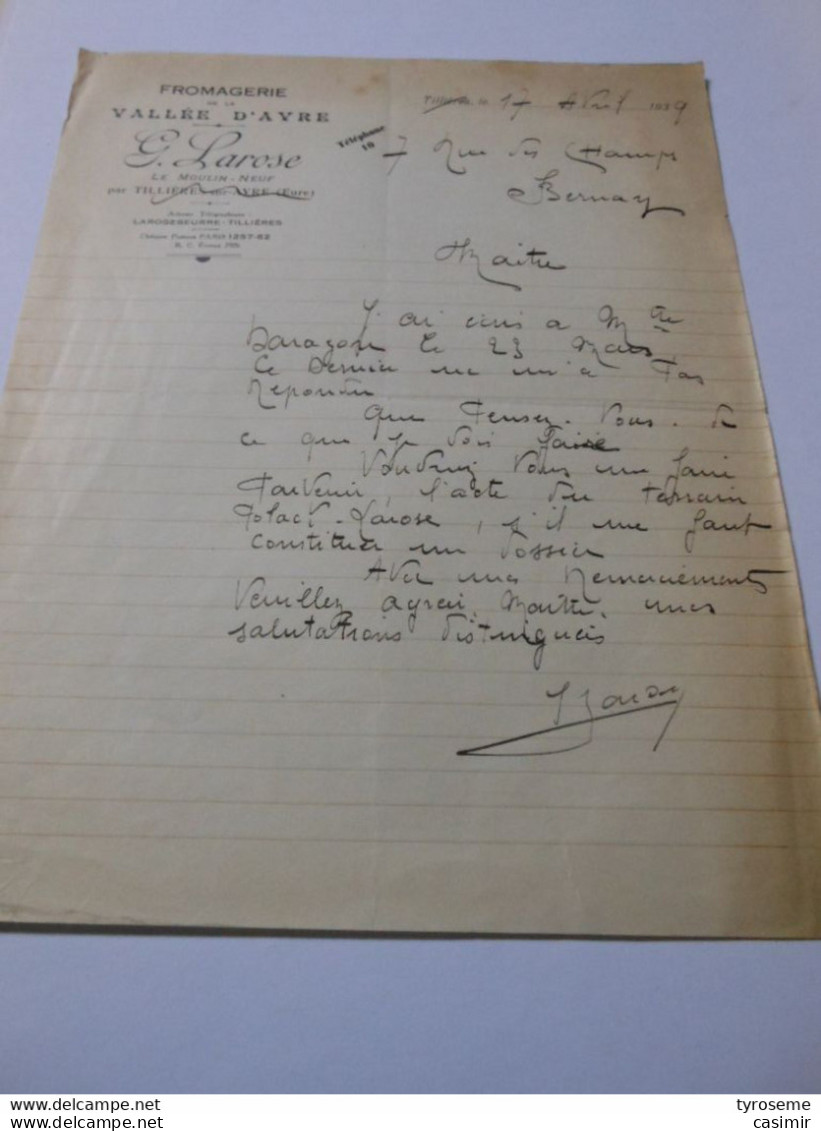 FROMAGERIE
DE LA
VALLÉE D'AVRE
G. Larose
LE MOULIN-NEUF
par TILLIÈRES-sur-AVRE (Eure)
Adresse Télégraphique
LAROSEBEURRE-TILLIÈRES
Chèques Postaux PARIS 1257-62
R. C. Évreux
Téléphone
10
Tillières, le 17 Avril 1939
7 Rue des Champs
Bernay
Maitre
J'ai écris a Mtre
le 23 Mars,
Ce dernier ne m'a Pas
repondu
Que Pensez-Vous de
ce que je dois faire
Voudriez Vous me faire
Parvenir, l'acte du terrain
Polack-Larose, s'il me faut
Constituer un Dossier
Avec mes Remerciements
Veuillez agréer, Maitre, mes
salutations distinguées
Larose
tyroseme
casimir
Merci www.delcampe.net